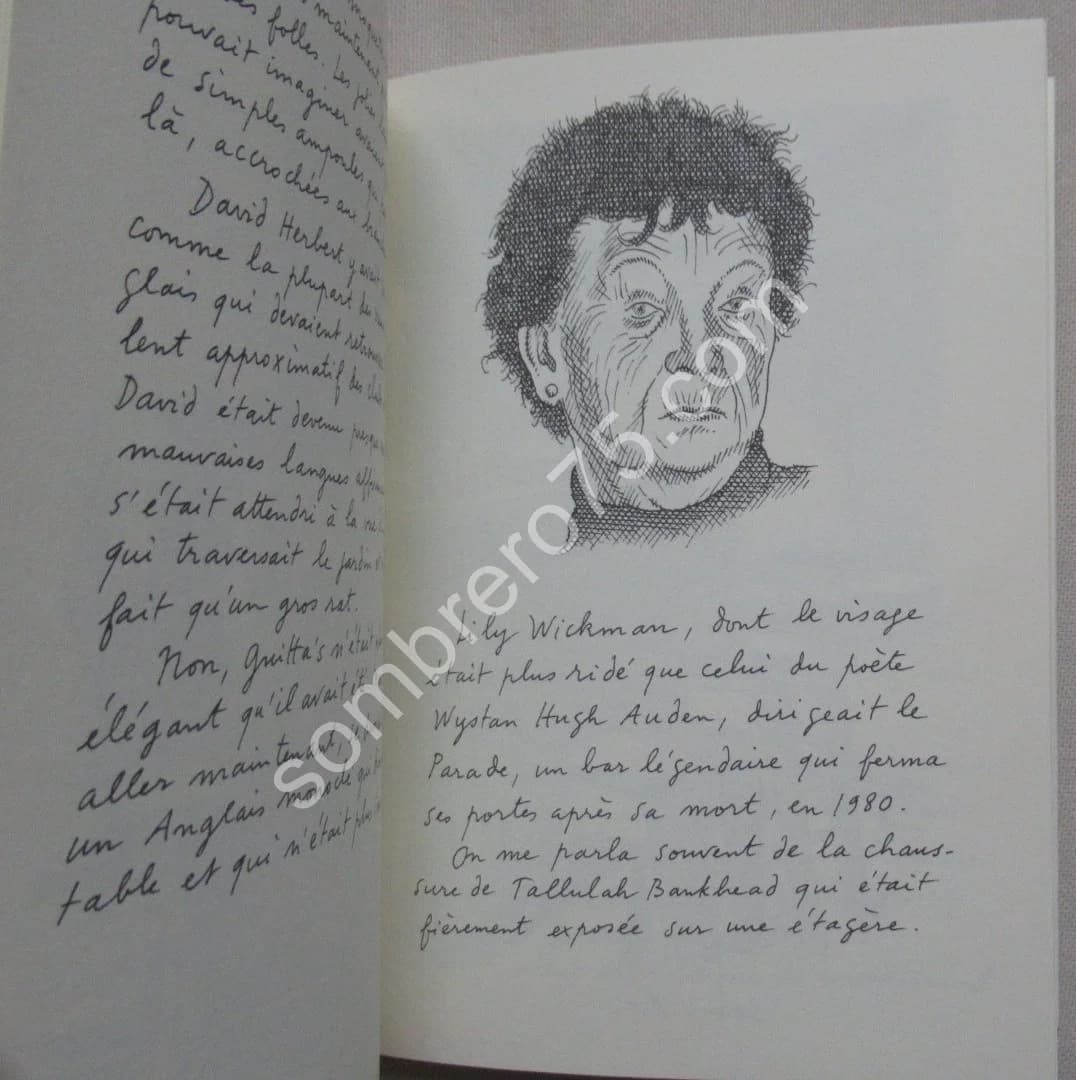 maintenant
folles. Les
pouvait imaginer
de simples ampoules
là, accrochées aux
David Herbert y avait
comme la plupart des
glais qui devaient
lent approximatif des
David était devenu presque
mauvaises langues
s'était attendri à la
qui traversait le jardin
fait qu'un gros rat.
Non, Guitta's n'était
élégant qu'il avait
aller maintenant,
un Anglais
table et qui n'était plus
Lily Wickman, dont le visage
était plus ridé que celui du poète
Wystan Hugh Auden, dirigeait le
Parade, un bar légendaire qui ferma
ses portes après sa mort, en 1980.
On me parla souvent de la chaus-
sure de Tallulah Bankhead qui était
fièrement exposée sur une étagère.
sombrero75.com